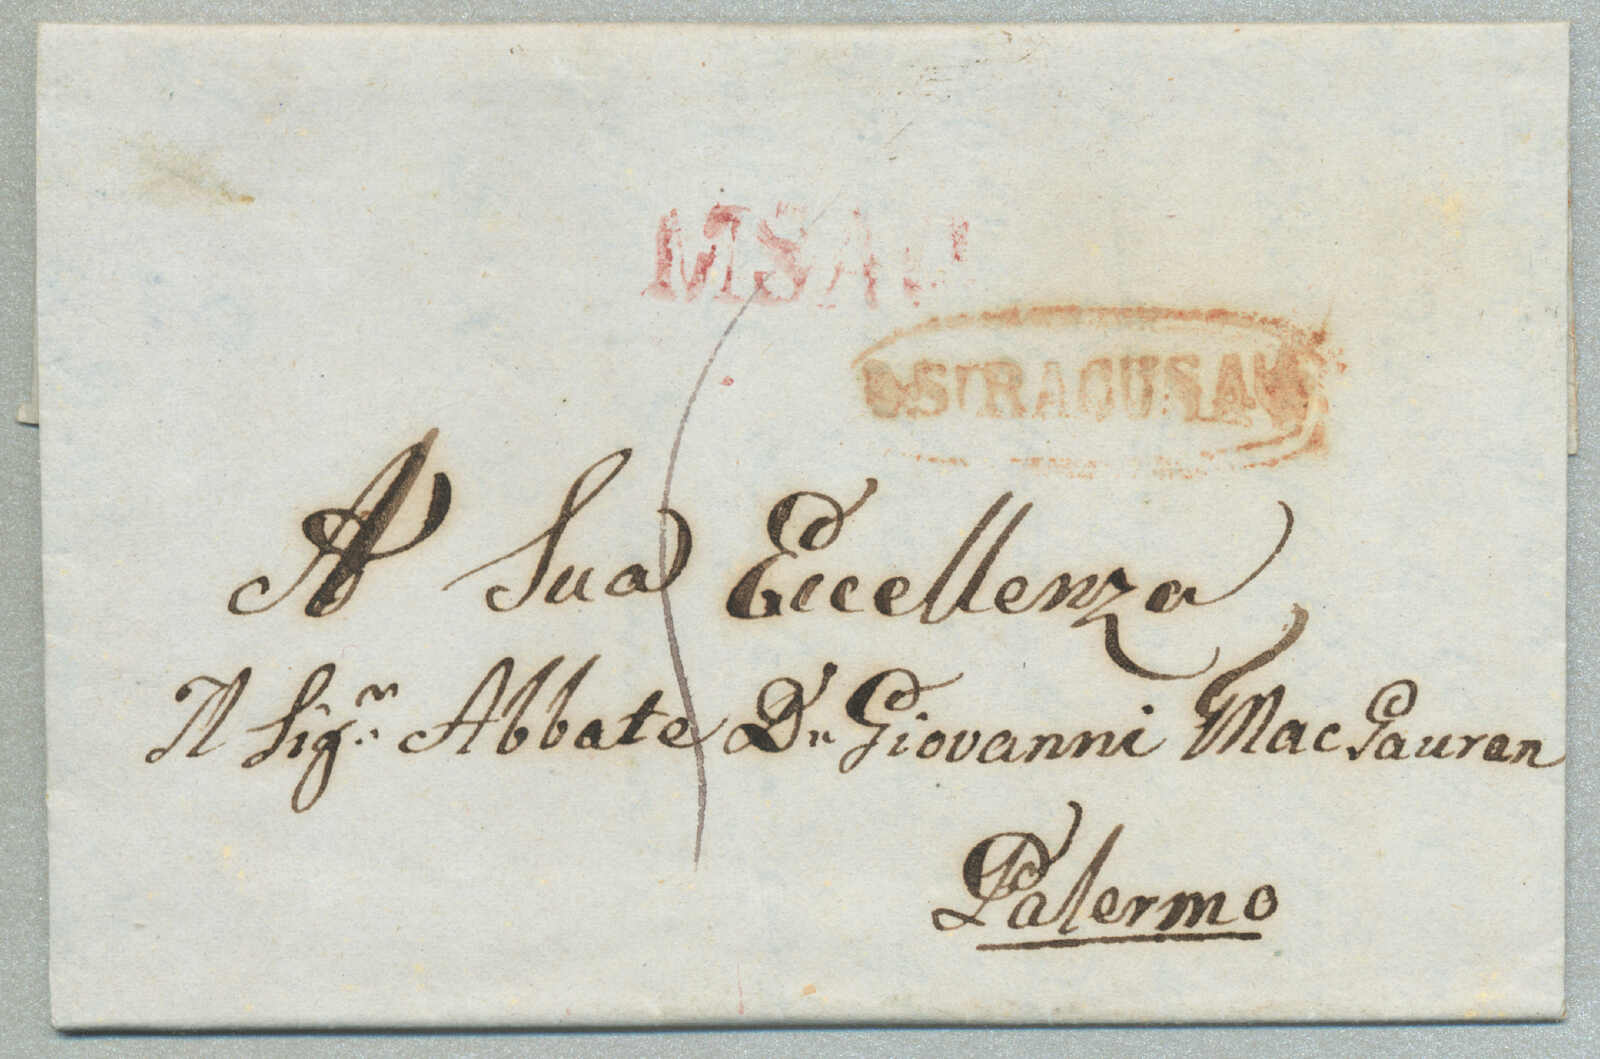 MSAC
SIRACUSA
A Sua Eccellenza
Il Sigr. Abbate Dn Giovanni MacGauran
Palermo